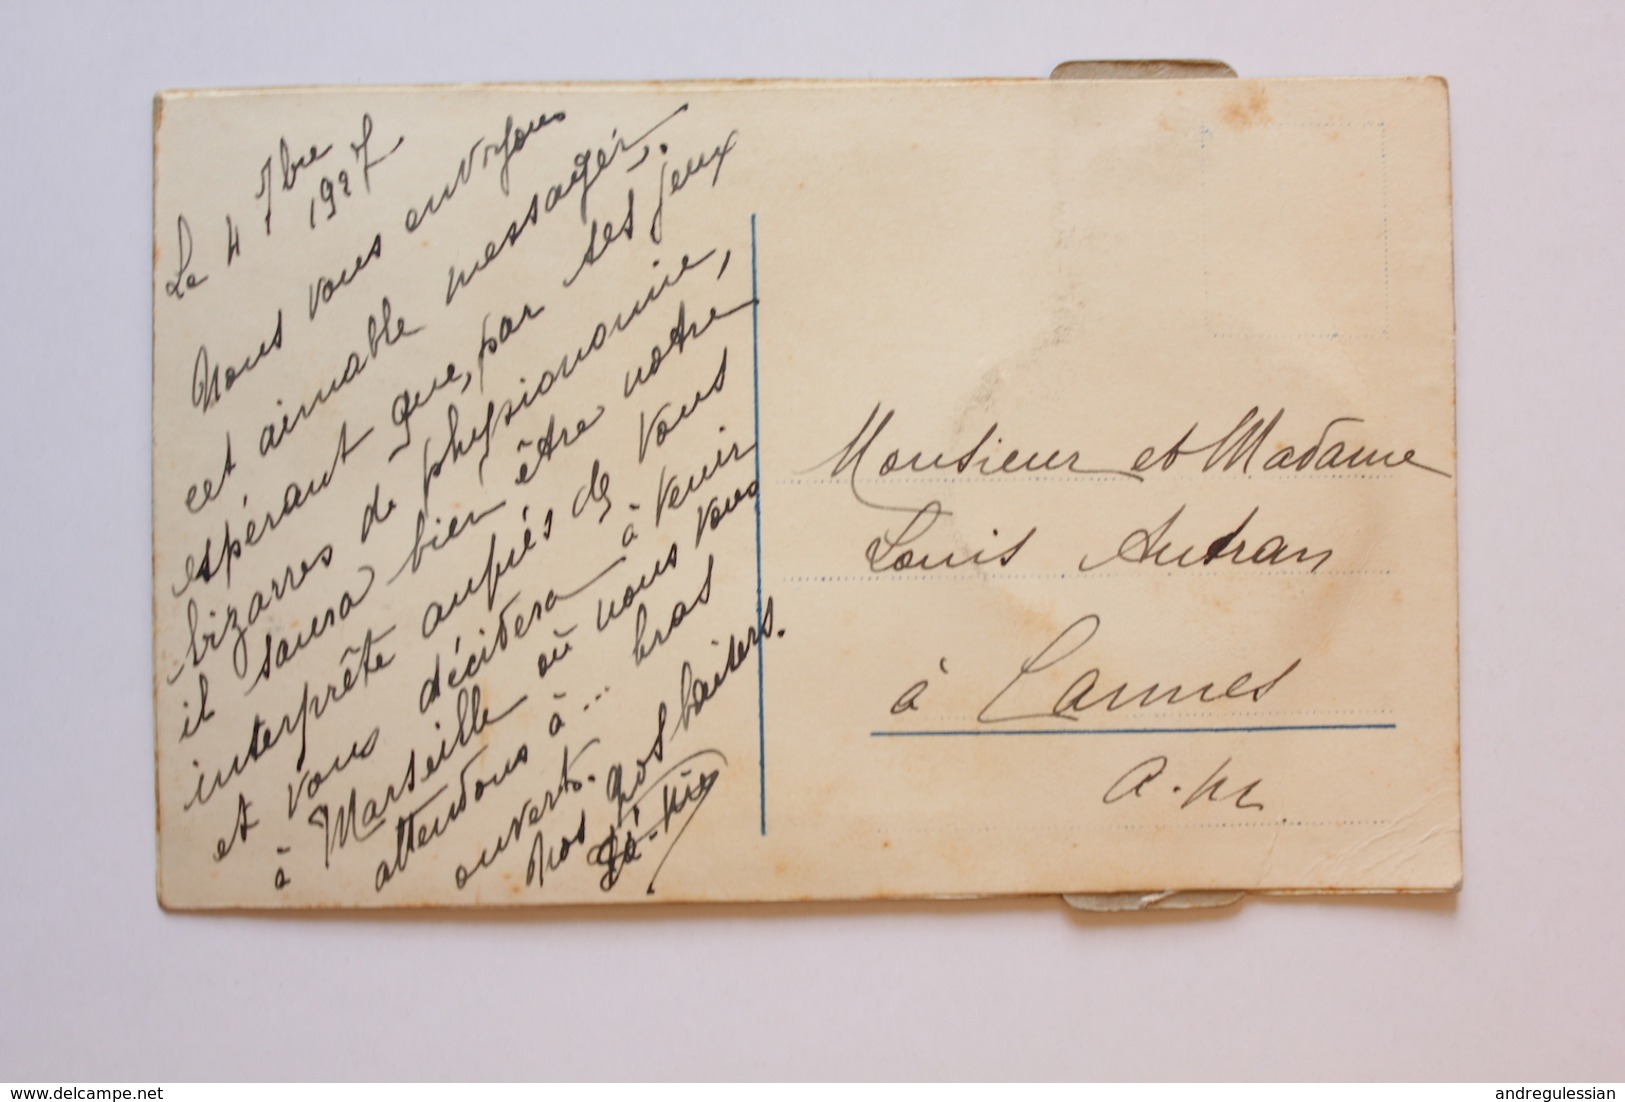 Le 4 7bre
1927
Nous vous envoyons
cet aimable messager,
espérant que, par ses jeux
bizarres de physionomie,
il saura bien être notre
interprète auprès de vous
et vous décidera à venir
à Marseille où nous vous
attendons à... bras
ouverts.
Nos gros baisers.
Monsieur et Madame
Louis Autran
à Cannes
A.M
www.delcampe.net
andregulessian